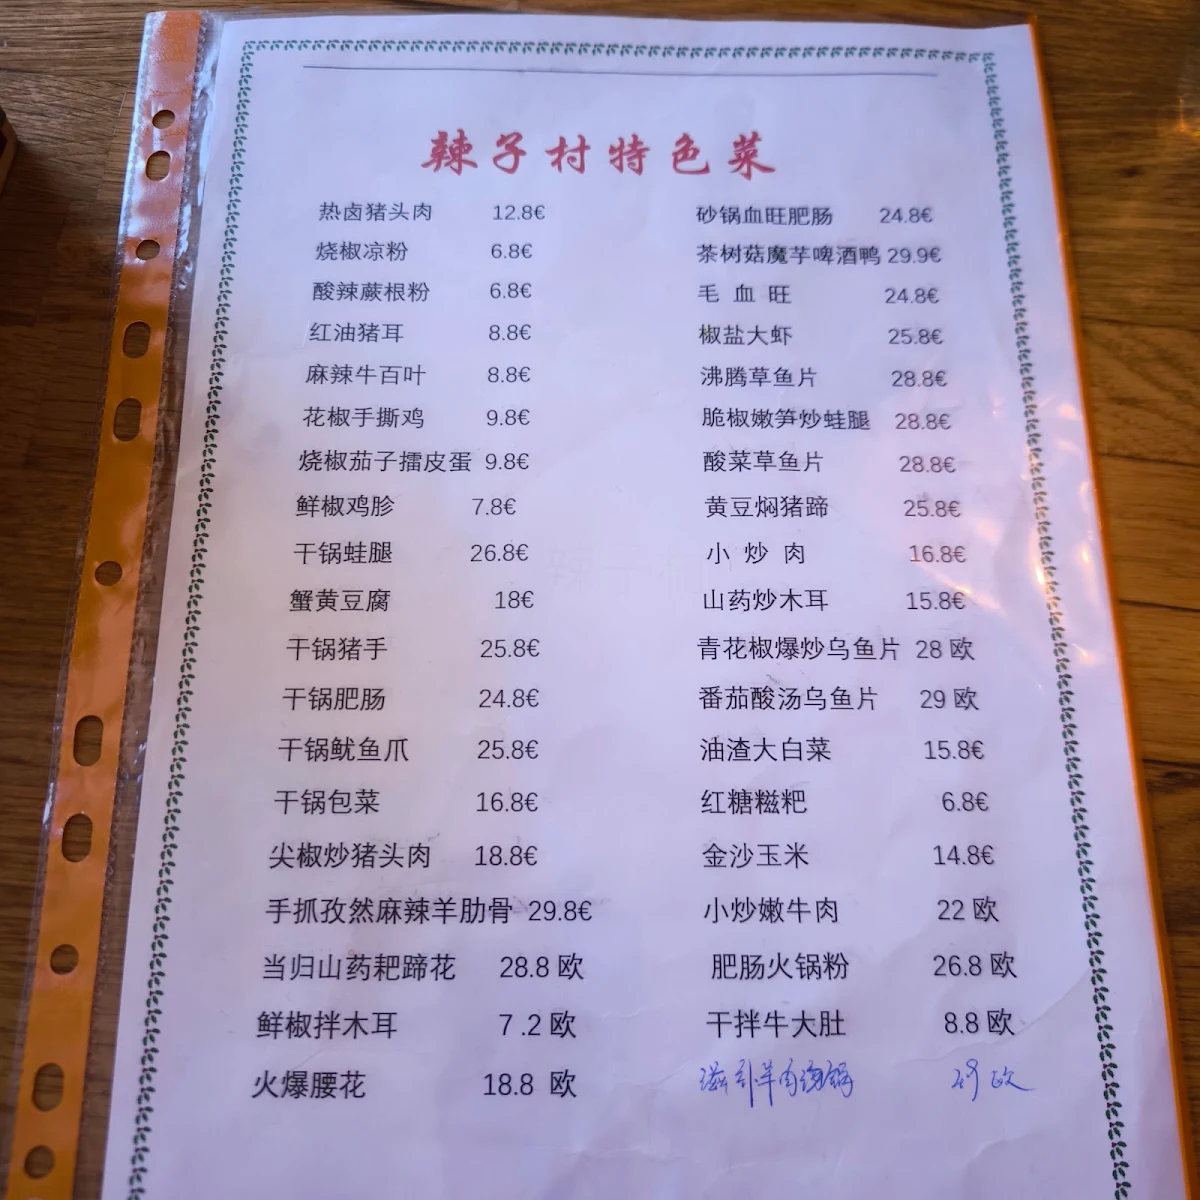 辣子村特色菜
热卤猪头肉 12.8€
烧椒凉粉 6.8€
酸辣蕨根粉 6.8€
红油猪耳 8.8€
麻辣牛百叶 8.8€
花椒手撕鸡 9.8€
烧椒茄子擂皮蛋 9.8€
鲜椒鸡胗 7.8€
干锅蛙腿 26.8€
蟹黄豆腐 18€
干锅猪手 25.8€
干锅肥肠 24.8€
干锅鱿鱼爪 25.8€
干锅包菜 16.8€
尖椒炒猪头肉 18.8€
手抓孜然麻辣羊肋骨 29.8€
当归山药耙蹄花 28.8 欧
鲜椒拌木耳 7 .2 欧
火爆腰花 18.8 欧
砂锅血旺肥肠 24.8€
茶树菇魔芋啤酒鸭 29.9€
毛 血 旺 24.8€
椒盐大虾 25.8€
沸腾草鱼片 28.8€
脆椒嫩笋炒蛙腿 28.8€
酸菜草鱼片 28.8€
黄豆焖猪蹄 25.8€
小 炒 肉 16.8€
山药炒木耳 15.8€
青花椒爆炒乌鱼片 28 欧
番茄酸汤乌鱼片 29 欧
油渣大白菜 15.8€
红糖糍粑 6.8€
金沙玉米 14.8€
小炒嫩牛肉 22 欧
肥肠火锅粉 26.8 欧
干拌牛大肚 8.8 欧
滋补羊肉汤锅 欧